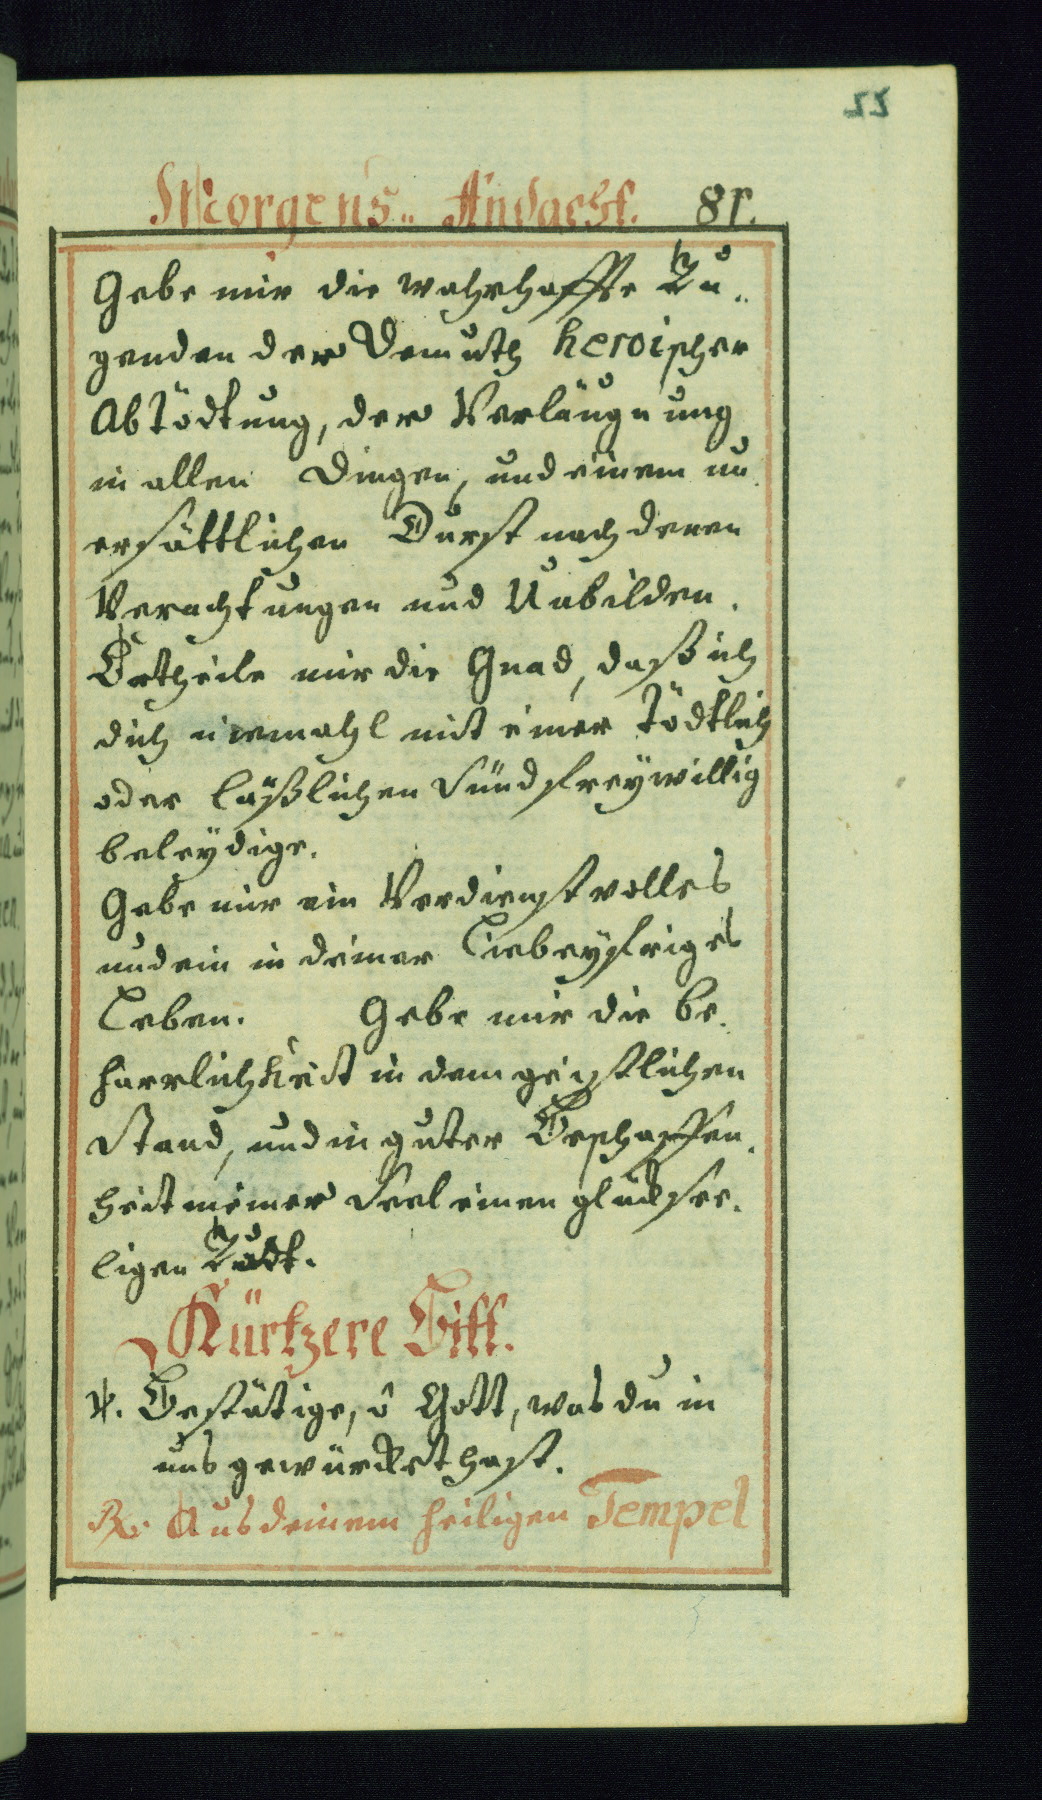 22
Morgens„ Andacht. 81.
Gebe mir die wahrhaffte Tu„
genden der Demuth heroischer
Abtödtung, der Verläugnung
in allen Dingen, und einem un„
ersättlichen Durst nach denen
Verachtungen und Unbilden.
Ertheile mir die Gnad, daß ich
dich niemahl mit einer tödtlich
oder läßlichen Sünd freÿwillig
beleÿdige.
Gebe mir ein Verdienstvolles
und ein in deiner Lieb eÿfriges
Leben. Gebe mir die be„
harrlichkeit in dem geistlichen
Stand, und in guter Beschaffen„
heit meiner Seel einen glücksee„
ligen Todt.
Kürtzere Bitt.
V. Bestätige, ô Gott, was du in
uns gewürcket hast.
R. Aus deinem heiligen Tempel